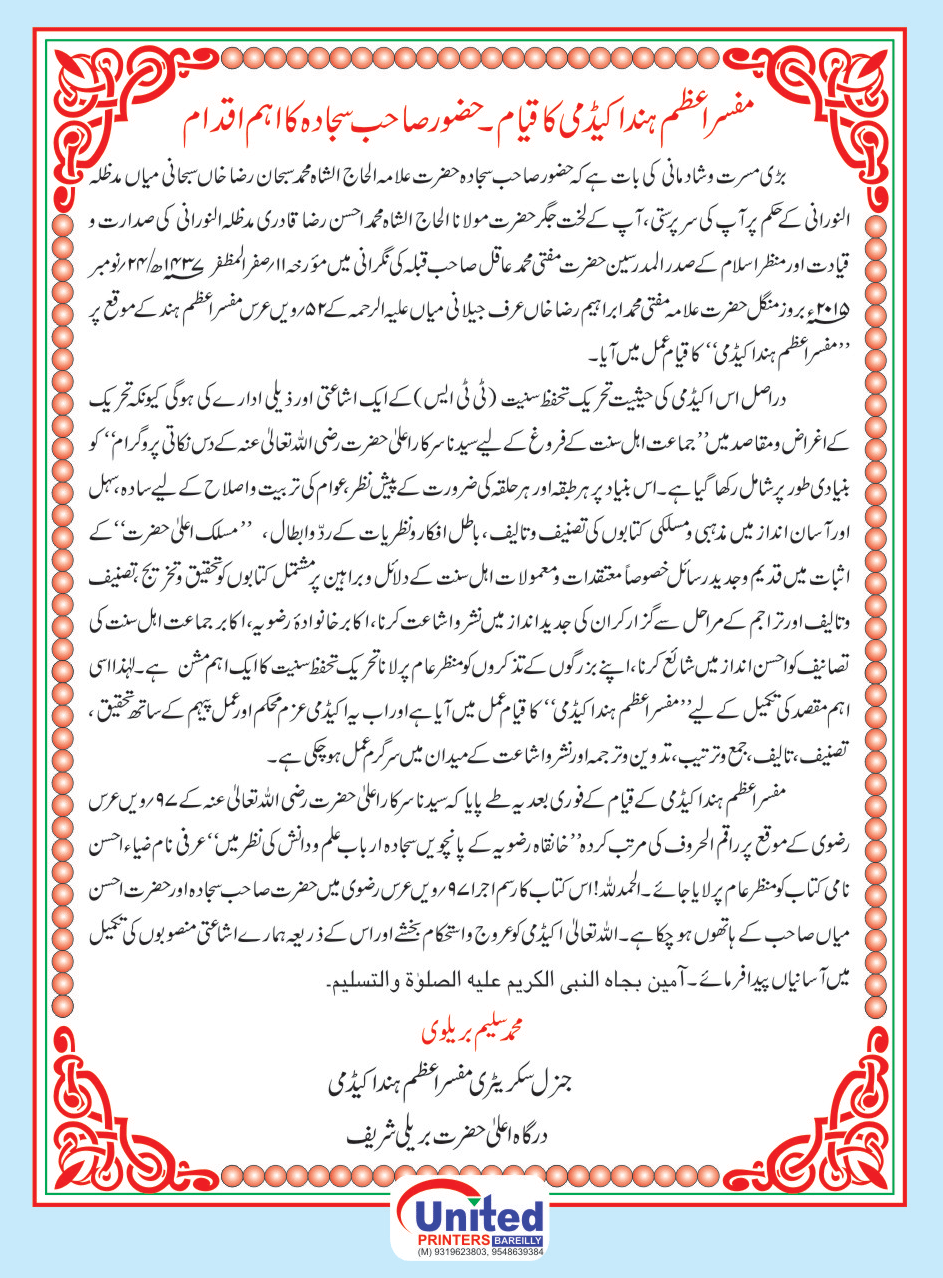 مفسر اعظم ہند اکیڈمی کا قیام۔ حضور صاحب سجادہ کا اہم اقدام
بڑی مسرت و شادمانی کی بات ہے کہ حضور صاحب سجادہ حضرت علامہ الحاج الشاہ محمد سبحان رضا خاں سبحانی میاں مدظلہ
النورانی کے حکم پر آپ کی سرپرستی، آپ کے لخت جگر حضرت مولانا الحاج الشاہ محمد احسن رضا قادری مدظلہ النورانی کی صدارت و
قیادت اور منظر اسلام کے صدر المدرسین حضرت مفتی محمد عاقل صاحب قبلہ کی نگرانی میں مؤرخہ ۱۱/صفر المظفر ۱۴۳۷ھ/۲۴/نومبر
۲۰۱۵ء بروز منگل حضرت علامہ مفتی محمد ابراہیم رضا خاں عرف جیلانی میاں علیہ الرحمہ کے ۵۲/ویں عرس مفسر اعظم ہند کے موقع پر
”مفسر اعظم ہند اکیڈمی“ کا قیام عمل میں آیا۔
دراصل اس اکیڈمی کی حیثیت تحریک تحفظ سنیت (ٹی ٹی ایس) کے ایک اشاعتی اور ذیلی ادارے کی ہوگی کیونکہ تحریک
کے اغراض و مقاصد میں ”جماعت اہل سنت کے فروغ کے لیے سیدنا سرکار اعلیٰ حضرت رضی اللہ تعالیٰ عنہ کے دس نکاتی پروگرام“ کو
بنیادی طور پر شامل رکھا گیا ہے۔ اس بنیاد پر ہر طبقہ اور ہر حلقہ کی ضرورت کے پیش نظر، عوام کی تربیت و اصلاح کے لیے سادہ، سہل
اور آسان انداز میں مذہبی و مسلکی کتابوں کی تصنیف و تالیف، باطل افکار و نظریات کے ردّ و ابطال، ”مسلک اعلیٰ حضرت“ کے
اثبات میں قدیم و جدید رسائل خصوصاً معتقدات و معمولات اہل سنت کے دلائل و براہین پر مشتمل کتابوں کو تحقیق و تخریج، تصنیف
و تالیف اور تراجم کے مراحل سے گزار کر ان کی جدید انداز میں نشر و اشاعت کرنا، اکابر خانوادۂ رضویہ، اکابر جماعت اہل سنت کی
تصانیف کو احسن انداز میں شائع کرنا، اپنے بزرگوں کے تذکروں کو منظر عام پر لانا تحریک تحفظ سنیت کا ایک اہم مشن ہے۔ لہٰذا اسی
اہم مقصد کی تکمیل کے لیے ”مفسر اعظم ہند اکیڈمی“ کا قیام عمل میں آیا ہے اور اب یہ اکیڈمی عزم محکم اور عمل پیہم کے ساتھ تحقیق،
تصنیف، تالیف، جمع و ترتیب، تدوین و ترجمہ اور نشر و اشاعت کے میدان میں سرگرم عمل ہو چکی ہے۔
مفسر اعظم ہند اکیڈمی کے قیام کے فوری بعد یہ طے پایا کہ سیدنا سرکار اعلیٰ حضرت رضی اللہ تعالیٰ عنہ کے ۹۷/ویں عرس
رضوی کے موقع پر راقم الحروف کی مرتب کردہ ”خانقاہ رضویہ کے پانچویں سجادہ ارباب علم و دانش کی نظر میں“ عرفی نام ضیاء احسن
نامی کتاب کو منظر عام پر لایا جائے۔ الحمد للہ! اس کتاب کا رسم اجرا ۹۷/ویں عرس رضوی میں حضرت صاحب سجادہ اور حضرت احسن
میاں صاحب کے ہاتھوں ہو چکا ہے۔ اللہ تعالیٰ اکیڈمی کو عروج و استحکام بخشے اور اس کے ذریعہ ہمارے اشاعتی منصوبوں کی تکمیل
میں آسانیاں پیدا فرمائے۔ آمین بجاہ النبی الکریم علیہ الصلوٰۃ والتسلیم۔
محمد سلیم بریلوی
جنرل سکریٹری مفسر اعظم ہند اکیڈمی
درگاہ اعلیٰ حضرت بریلی شریف
United
PRINTERS BAREILLY
(M) 9319623803, 9548639384